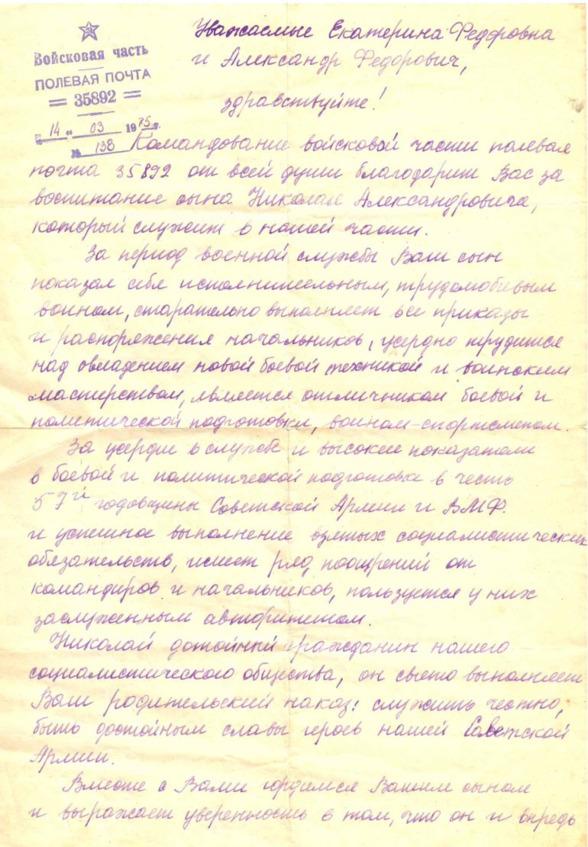 Войсковая часть
ПОЛЕВАЯ ПОЧТА
= 35892 =
"14" 03 1975 г.
№ 138
Уважаемые Екатерина Федоровна
и Александр Федорович,
здравствуйте!
Командование войсковой части полевая
почта 35892 от всей души благодарит Вас за
воспитание сына Николая Александровича,
который служит в нашей части.
За период военной службы Ваш сын
показал себя исполнительным, трудолюбивым
воином, старательно выполняет все приказы
и распоряжения начальников, усердно трудится
над овладением новой боевой техникой и воинским
мастерством, является отличником боевой и
политической подготовки, воином-спортсменом.
За усердие в службе и высокие показатели
в боевой и политической подготовке в честь
57й годовщины Советской Армии и ВМФ
и успешное выполнение взятых социалистических
обязательств, имеет ряд поощрений от
командиров и начальников, пользуется у них
заслуженным авторитетом.
Николай достойный гражданин нашего
социалистического общества, он свято выполняет
Ваш родительский наказ: служить честно,
быть достойным славы героев нашей Советской
Армии.
Вместе с Вами гордимся Вашим сыном
и выражаем уверенность в том, что он и впредь